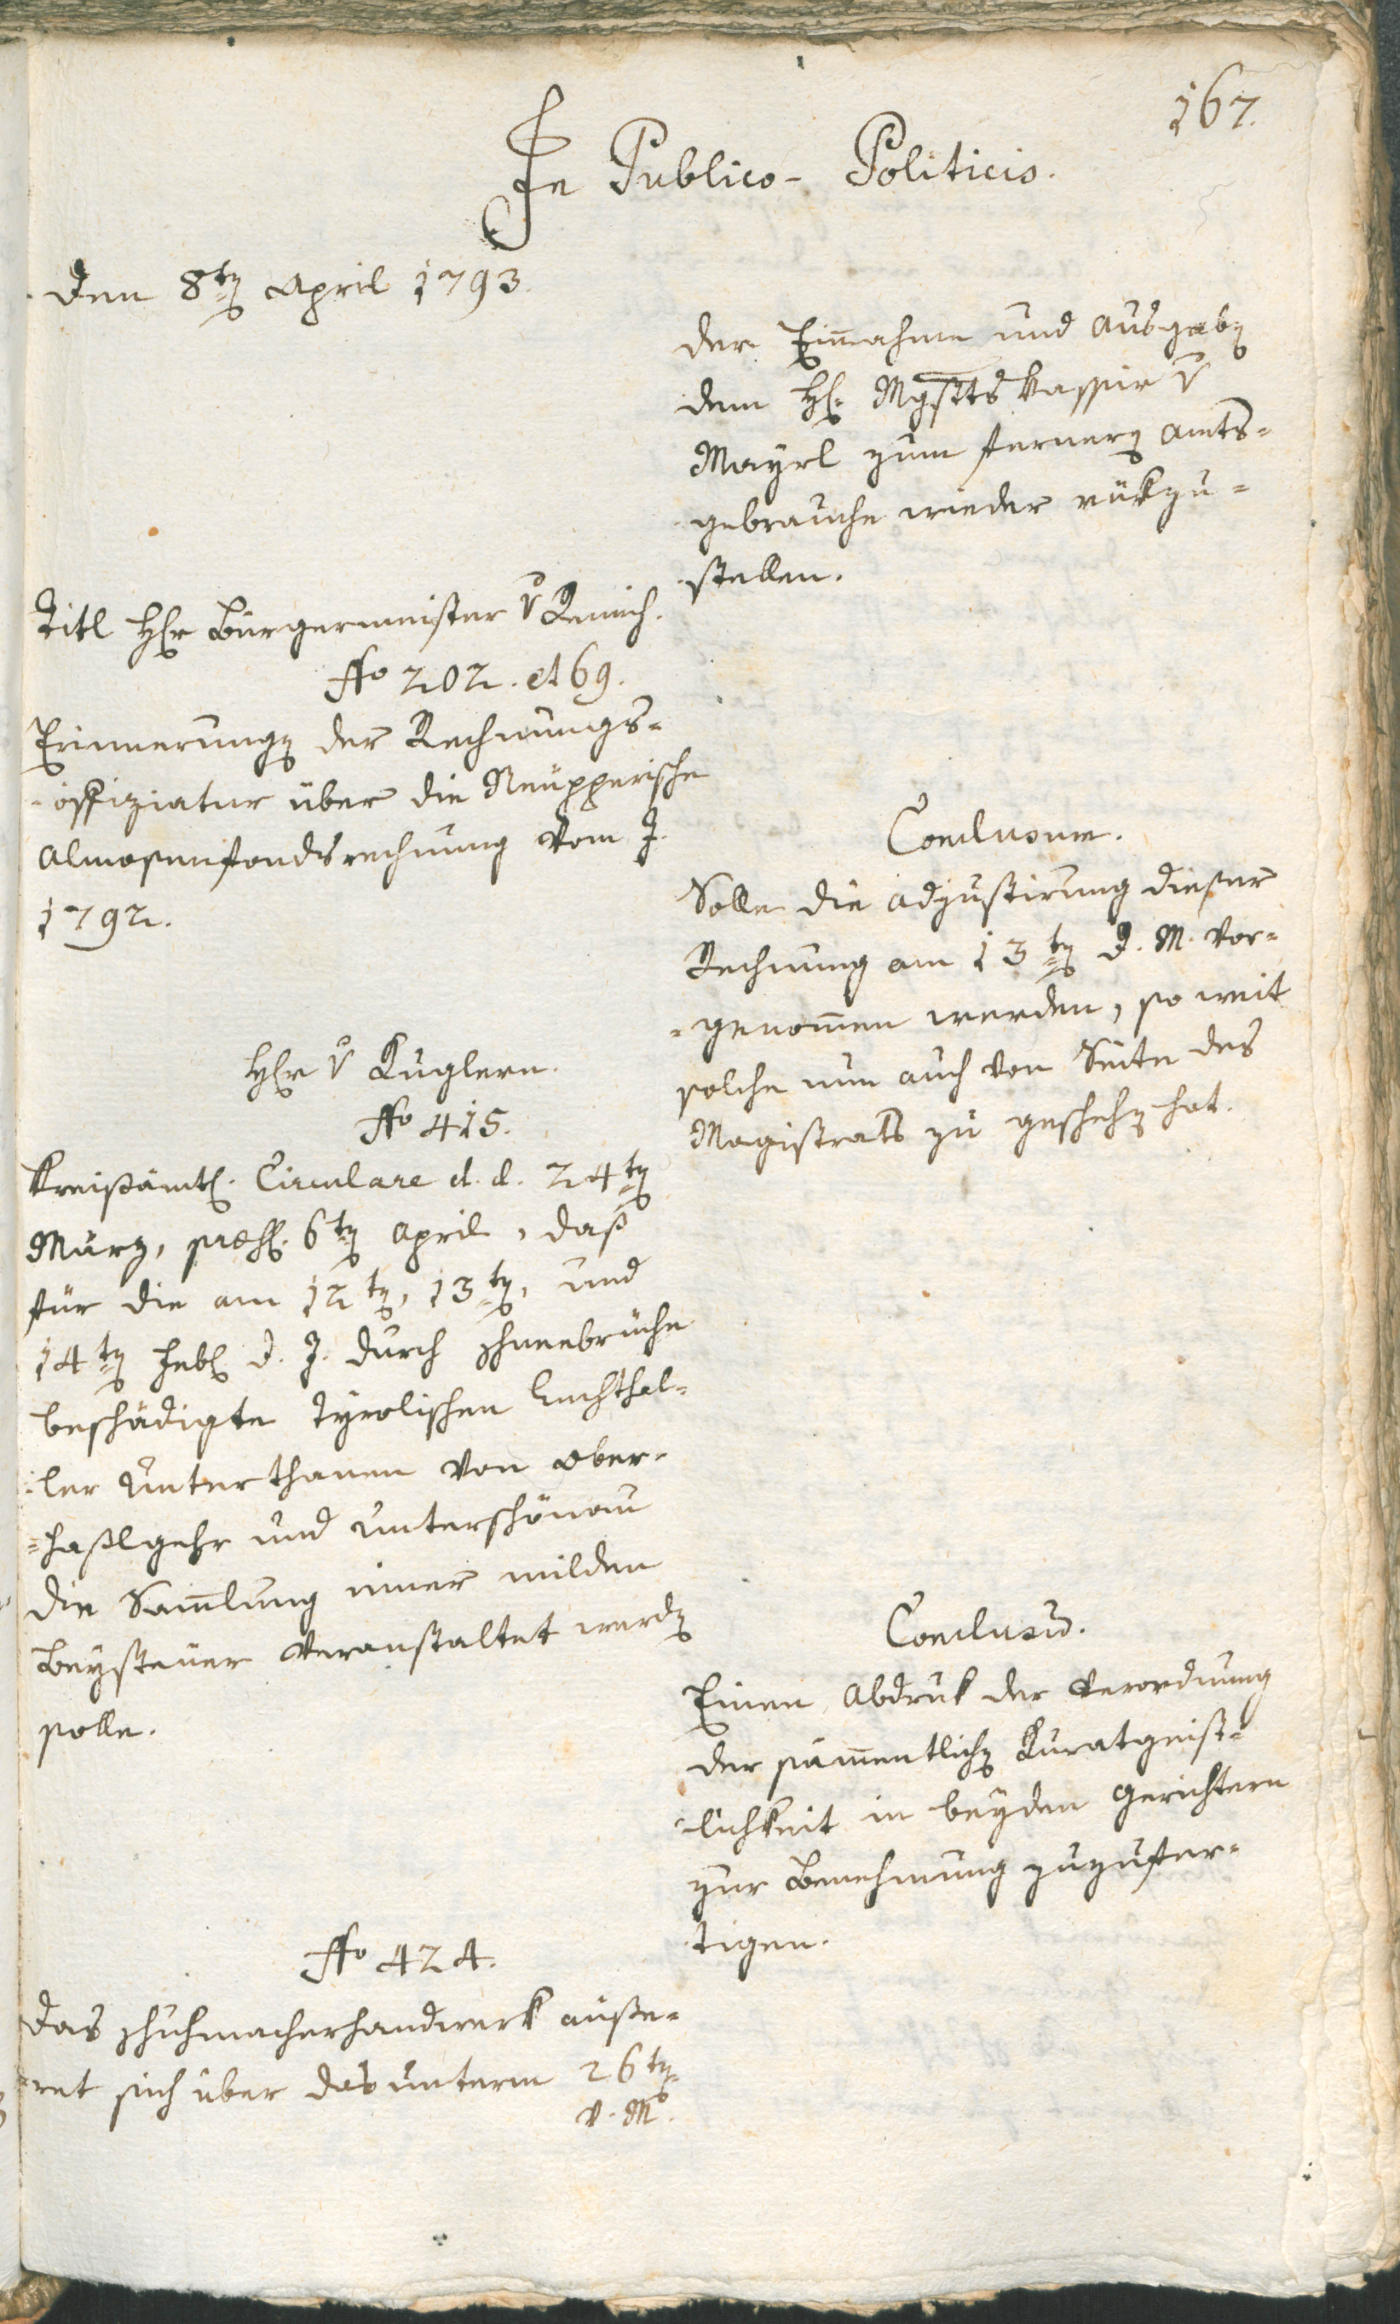 167.
In Publico- Politicis.
Den 8tn April 1793.
der Einnahme und Ausgabn
dem H. Mgstts Kassir v
Mayrl zum fernern Amts-
gebrauche wieder rükzu-
stellen.
Titl Hr Bürgermeister v Remich.
No 202. et 69.
Erinnerungn der Rechnungs-
-offiziatur über die
Almosenfondsrechnung vom J.
1792.
Conclusum.
Solle die Adjustirung dieser
Rechnung am 13tn d. M. vor-
-genommen werden, so weit
solche nun auch von Seite des
Magistrats zu geschehn hat.
Hr v Kuglern.
No 415.
Kreisämtl. Circulare d. d. 24tn
März, præs. 6tn April, daß
für die am 12tn, 13tn, und
14tn Feb. d. J. durch Schneebrüche
beschädigte Tyrolischen Lechthal-
-ler Unterthanen von Ober-
-haslgehr und Unterschönau
die Samlung einer milden
Beysteuer veranstaltet werdn
solle.
Conclusum.
Einen Abdruk der Verordnung
der sammentlichn Kuratgeist-
-lichkeit in beyden Gerichtern
zur Benehmung zuzufer-
tigen.
No 424.
Das Schuhmacherhandwerk äuße-
-ret sich über das unterm 26tn
v. M.